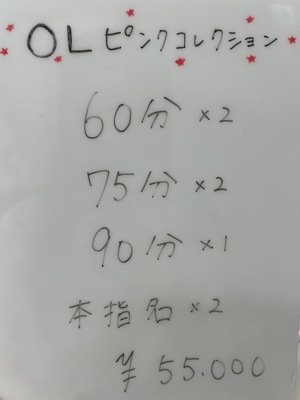 OLピンクコレクション
60分 ×2
75分 ×2
90分 ×1
本指名 ×2
¥55.000